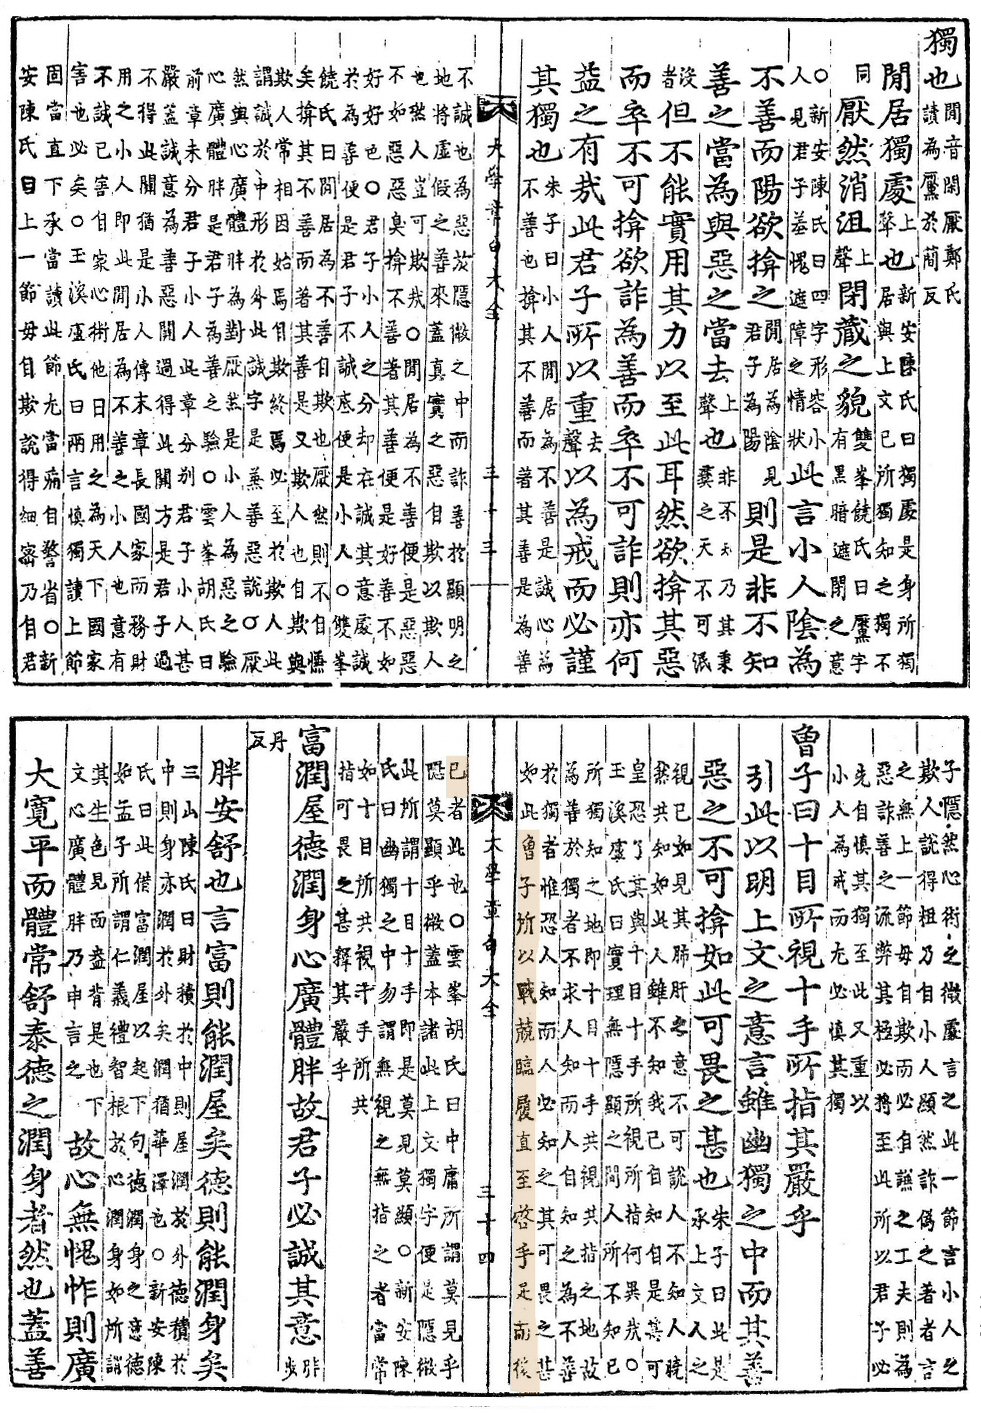 獨也閒音閑厭鄭氏讀為黶於簡反
閒居獨處上聲也新安陳氏曰獨處是身所獨居與上文已所獨知之獨不
同厭然消沮上聲閉藏之貌雙峯饒氏曰黶字有黑暗遮閉之意
○新安陳氏曰四字形容小人見君子羞愧遮障之情狀此言小人陰為
不善而陽欲揜之閒居為陰見君子為陽則是非不知
善之當為與惡之當去上聲也非不知乃其秉彝之天不可泯
沒者但不能實用其力以至此耳然欲揜其惡
而卒不可揜欲詐為善而卒不可詐則亦何
益之有哉此君子所以重去聲以為戒而必謹
其獨也朱子曰小人閒居為不善是誠心為不善也揜其不善而著其善是為善
大學章句大全 三十三
不誠也為惡於隱微之中而詐善於顯明之
地將虛假之善來蓋真實之惡自欺以欺人
也然人豈可欺哉○閒居為不善便是惡惡
不如惡惡臭揜不善著其善便是好善不如
好好色○君子小人之分却在誠其意處誠
於為善便是君子不誠底便是小人○雙峯
饒氏曰閒居為不善自欺也厭然則不自慊
矣揜其不善而著其善是又欺人也自欺與
欺人常相因始焉自欺終焉必至於欺人此
謂誠於中形於外此誠字是兼善惡說○厭
然與心廣體胖為對厭然是小人為惡之驗
心廣體胖是君子為善之驗○雲峯胡氏曰
前章未分君子小人此章分別君子小人甚
嚴蓋誠意為善惡關過得此關方是君子過
不得此關猶是小人傳末章長國家而務財
用之小人即此閒居為不善之小人也意有
不誠已害自家心術他日用之為天下國家
害也必矣○玉溪盧氏曰兩言慎獨讀上節
固當直下承當讀此節尤當痛自警省○新
安陳氏曰上一節毋自欺說得細密乃自君
子隱然心術之微處言之此一節言小人之
欺人說得粗乃自小人顯然詐偽之著者言
之無上一節毋自欺而必自慊之工夫則為
惡詐善之流弊其極必將至此所以君子必
先自慎其獨至此又重以
小人為戒而尤必慎其獨
曾子曰十目所視十手所指其嚴乎
引此以明上文之意言雖幽獨之中而其善
惡之不可揜如此可畏之甚也朱子曰此是承上文人之
視已如見其肺肝之意不可說人不知人曉
然共知如此人雖不知我已自知自是甚可
皇恐了其與十目十手所視所指何異哉○
玉溪盧氏曰實理無隱顯之間人所不知已
所獨知之地即十目十手共視共指之地故
為善於獨者不求人知而人自知之為不善
於獨者惟恐人知而人必知之其可畏之甚
如此曾子所以戰兢臨履直至啓手足而後
大學章句大全 三十四
已者此也○雲峯胡氏曰中庸所謂莫見乎
隱莫顯乎微蓋本諸此上文獨字便是隱微
此所謂十目十手即是莫見莫顯○新安陳
氏曰幽獨之中勿謂無視之無指之者當常
如十目所共視十手所共
指可畏之甚釋其嚴乎
富潤屋德潤身心廣體胖故君子必誠其意胖步丹反
胖安舒也言富則能潤屋矣德則能潤身矣
三山陳氏曰財積於中則屋潤於外德積於
中則身亦潤於外矣潤猶華澤也○新安陳
氏曰此借富潤屋以起下句德潤身之意德
如孟子所謂仁義禮智根於心潤身如所謂
其生色見面盎背是也下
文心廣體胖乃申言之故心無愧怍則廣
大寬平而體常舒泰德之潤身者然也蓋善